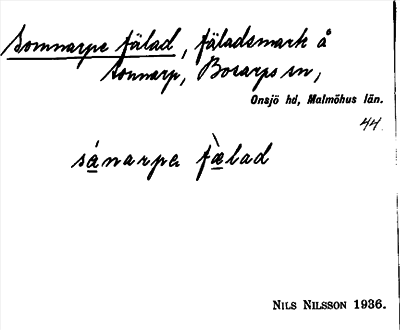 Sonnarps fälad, fäladsmark å
Sonnarp, Bosarps sn,
Onsjö hd, Malmöhus län.
44.
sánarpa fæ̀lad
NILS NILSSON 1936.